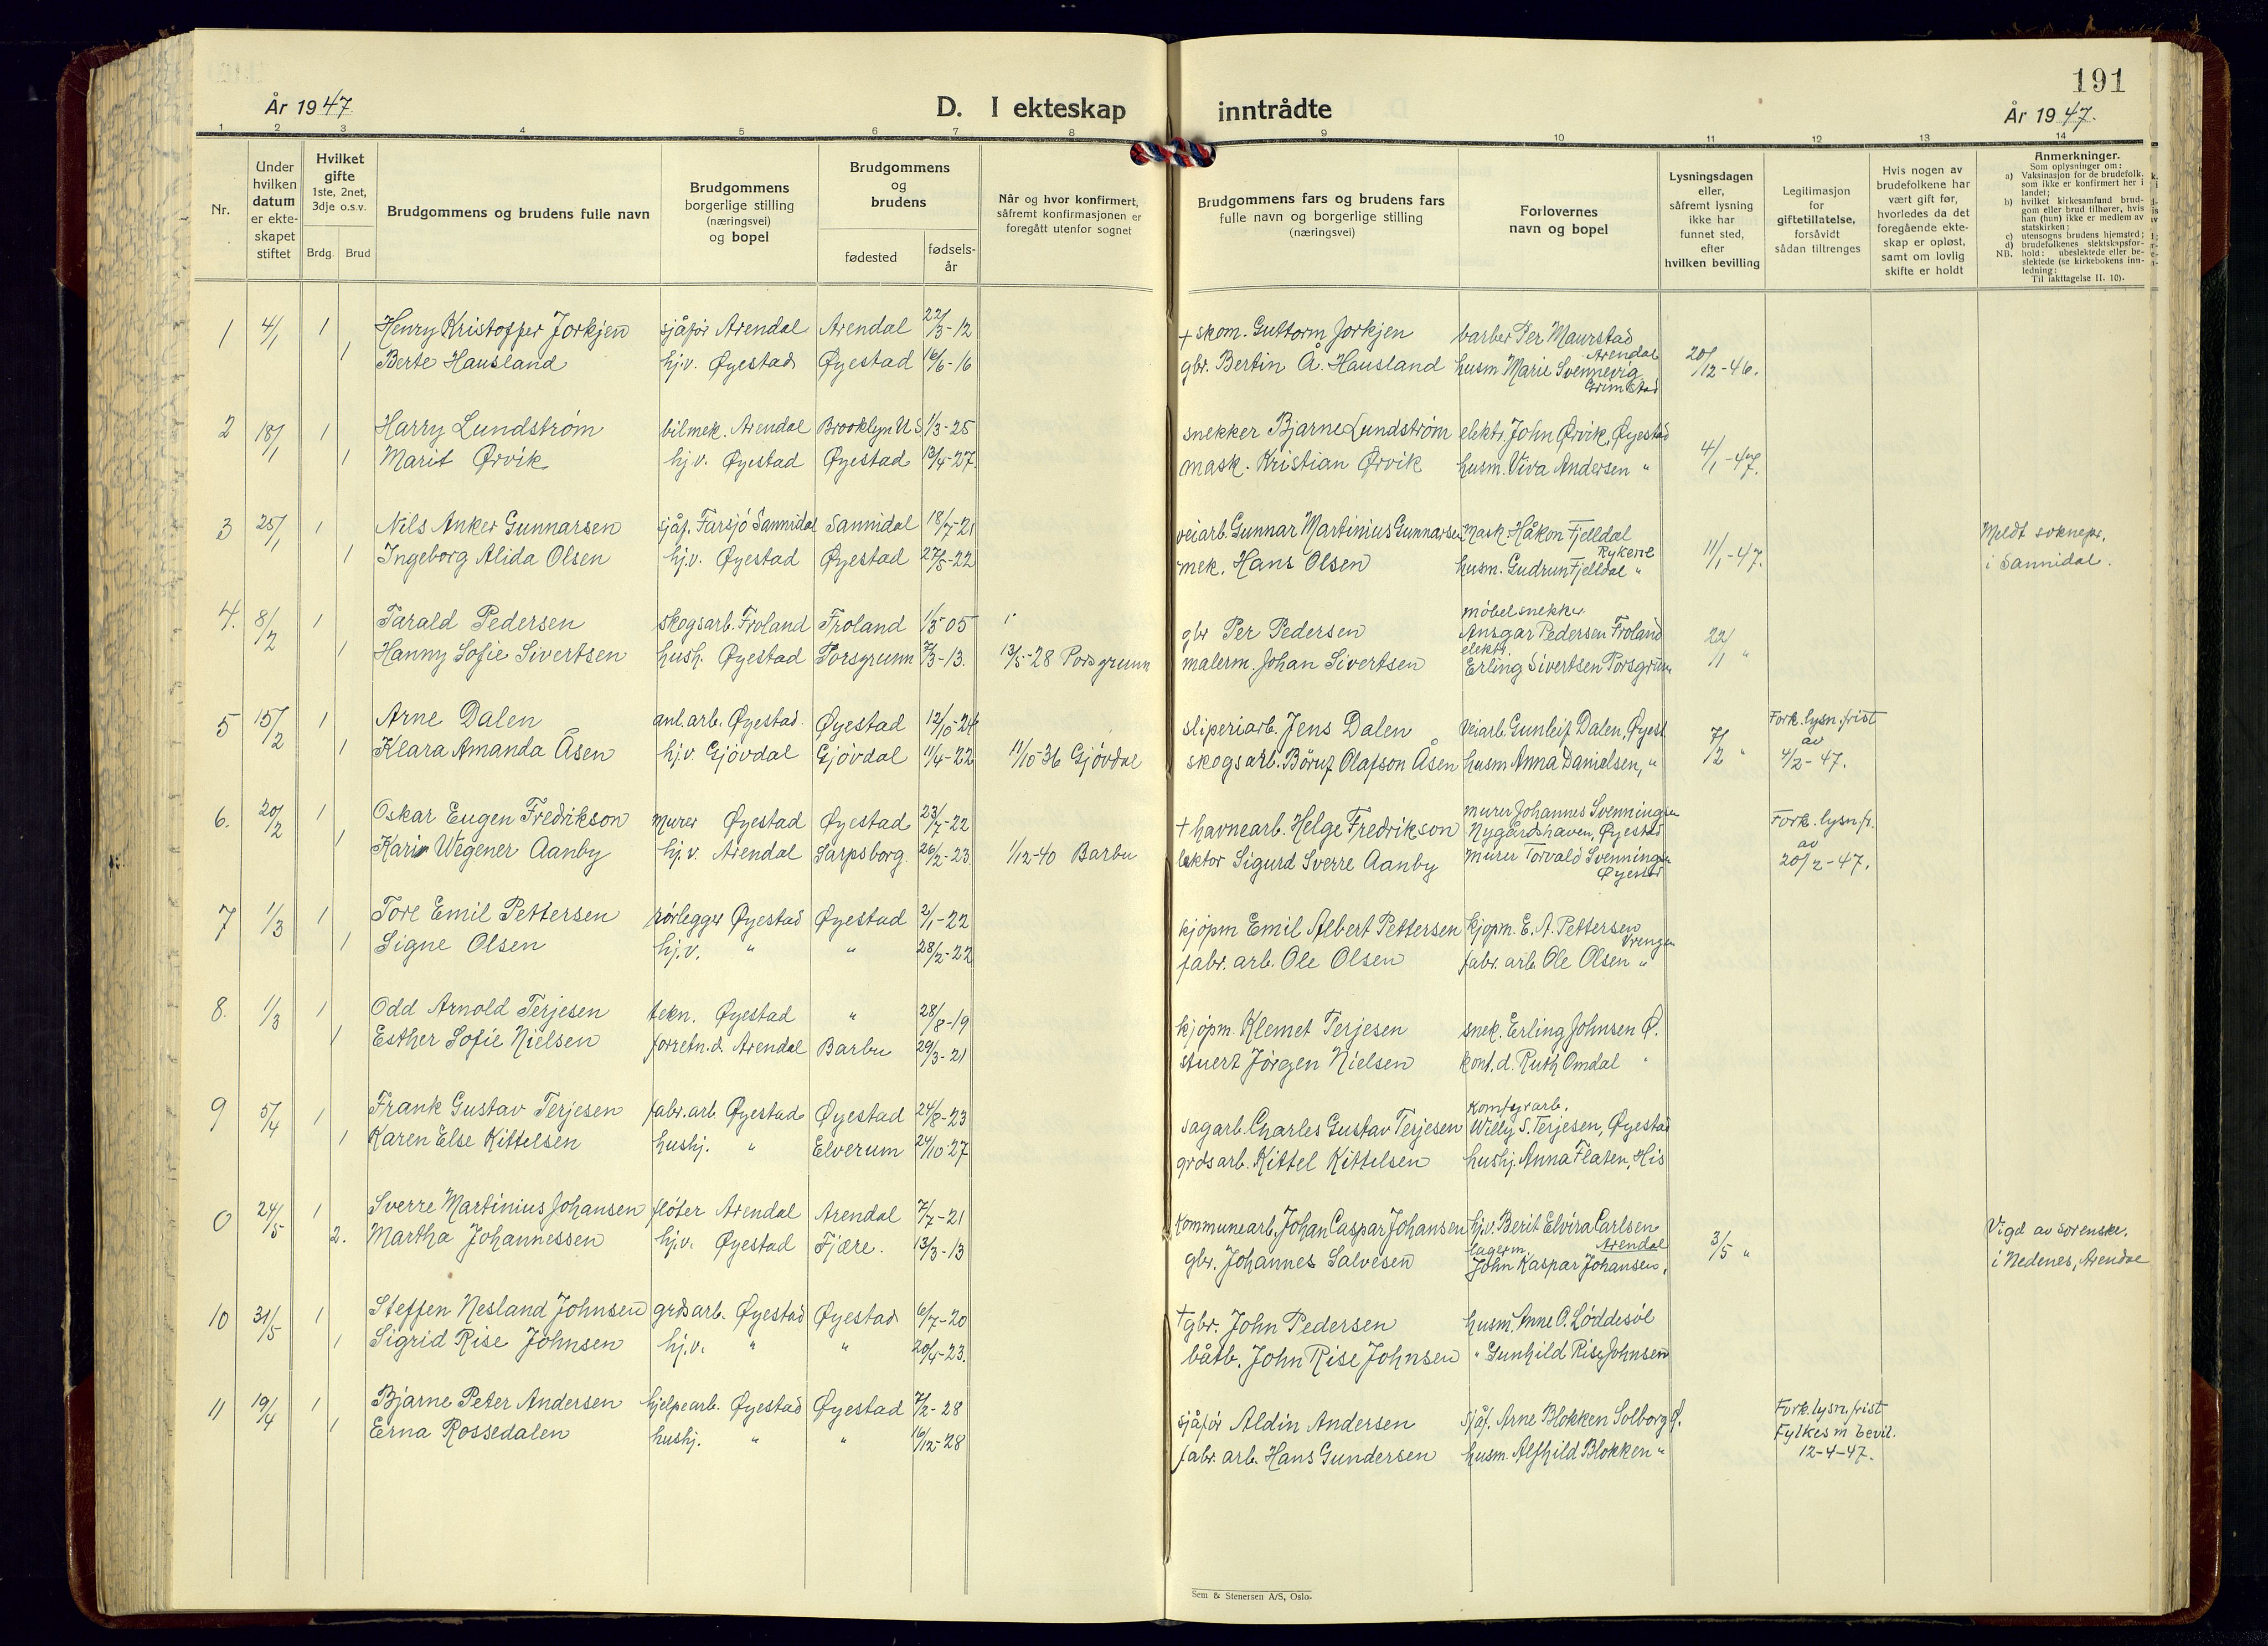 191
År 1947
D. I ekteskap inntrådte
År 1947.
1 2 3 4 5 6 7 8 9 10 11 12 13 14
Nr.
Under hvilken datum er ekteskapet stiftet
Hvilket gifte 1ste, 2net, 3dje o.s.v.
Brdg. Brud
Brudgommens og brudens fulle navn
Brudgommens borgerlige stilling (næringsvei) og bopel
Brudgommens og brudens
fødested
fødselsår
Når og hvor konfirmert, såfremt konfirmasjonen er foregått utenfor sognet
Brudgommens fars og brudens fars fulle navn og borgerlige stilling (næringsvei)
Forlovernes navn og bopel
Lysningsdagen eller, såfremt lysning ikke har funnet sted, efter hvilken bevilling
Legitimasjon for giftetillatelse, forsåvidt sådan tiltrenges
Hvis nogen av brudefolkene har vært gift før, hvorledes da det foregående ekteskap er opløst, samt om lovlig skifte er holdt
Anmerkninger.
Som oplysninger om:
a) Vaksinasjon for de brudefolk, som ikke er konfirmert her i landet;
b) hvilket kirkesamfund brudgom eller brud tilhører, hvis han (hun) ikke er medlem av statskirken;
c) utensogns brudens hjemsted;
d) brudefolkenes slektskapsforhold: ubeslektede eller beslektede (se kirkebokens innledning:
NB. Til iakttagelse II. 10).
1 4/1 1 Henry Kristoffer Jorkjen sjåfør Arendal Arendal 22/3-12 + skom. Guttorm Jorkjen barber Per Maurstad Arendal
1 Berte Hausland hj.v. Øyestad Øyestad 16/6-16 gbr. Bertin Å. Hausland husm. Marie Svennevig Grimstad 20/12-46.
2 18/1 1 Harry Lundstrøm bilmek. Arendal Brooklyn U.S. 1/3-25 snekker Bjarne Lundstrøm elektr. John Ørvik, Øyestad
1 Marit Ørvik hj.v. Øyestad Øyestad 13/4-27. mask. Kristian Ørvik husm. Viva Andersen " 4/1-47.
3 25/1 1 Nils Anker Gunnarsen sjåf. Farsjø Sannidal Sannidal 18/7-21 veiarb. Gunnar Martinius Gunnarsen Mask. Håkon Fjelldal Rykene Meldt soknepr.
1 Ingeborg Alida Olsen hj.v. Øyestad Øyestad 27/5-22 mek. Hans Olsen husm. Gudrun Fjelldal " 11/1-47. i Sannidal.
4. 8/2 1 Tarald Pedersen skogsarb. Froland Froland 1/5-05 gbr Per Pedersen møbelsnekker Ansgar Pedersen Froland
1 Hanny Sofie Sivertsen hush. Øyestad Porsgrunn 7/3-13. 13/5-28 Porsgrunn malerm. Johan Sivertsen elektr. Erling Sivertsen Porsgrunn 22/1 "
5 15/2 1 Arne Dalen anl.arb. Øyestad. Øyestad 12/10-24 sliperiarb. Jens Dalen Veiarb. Gunleif Dalen, Øyest Fork. lysn. frist
1 Klara Amanda Åsen hj.v. Gjøvdal Gjøvdal 11/4-22 11/10-36 Gjøvdal skogsarb. Olafson Åsen husm. Anna Danielsen, " 7/2 " av 4/2-47.
6. 20/2 1 Oskar Eugen Fredrikson murer Øyestad Øyestad 23/7-22 + havnearb. Helge Fredrikson murer Johannes Svenningsen Nygårdshaven, Øyestad Fork. lysn. fr.
1 Karin Wegener Aanby hj.v. Arendal Sarpsborg. 26/2-23. 1/12-40 Barbu lektor Sigurd Sverre Aanby Murer Torvald Svenningsen Øyestad av 20/2-47.
7 1/3 1 Tore Emil Pettersen rørlegger Øyestad Øyestad 2/1-22 kjøpm Emil Albert Pettersen kjøpm. E. A. Pettersen Vrengen
1 Signe Olsen hj.v. " " 28/2-22 fabr. arb. Ole Olsen fabr. arb. Ole Olsen "
8. 1/3 1 Odd Arnold Terjesen tekn. Øyestad " 28/8-19 kjøpm. Klemet Terjesen snek. Erling Johnsen Ø.
1 Esther Sofie Nielsen forretn.d. Arendal Barbu 29/3-21 stuert Jørgen Nielsen kont.d. Ruth Omdal "
9 5/4 1 Frank Gustav Terjesen fabr.arb Øyestad Øyestad 24/8-23 sagarb. Charles Gustav Terjesen komfyrarb. Willy S. Terjesen, Øyestad
1 Karen Else Kittelsen hushj. " Elverum 24/10-27 grdsarb. Kittel Kittelsen hushj. Anna Flaten, His
0 24/5 1 Sverre Martinius Johansen fløter Arendal Arendal 7/7-21 kommunearb. Johan Caspar Johansen hj.v. Berit Elvira Carlsen Arendal Vigd av sorenskr.
2. Martha Johannessen hj.v. Øyestad Fjære. 13/3-13 gbr. Johannes Salvesen lagerm. John Kaspar Johansen, 3/5 " i Nedenes, Arendal
10 31/5 1 Steffen Nesland Johnsen grdsarb. Øyestad Øyestad 6/7-20 + gbr. John Pedersen husm. Anne O. Løddesøl
1 Sigrid Rise Johnsen hj.v. " " 20/4-23. båtb. John Rise Johnsen " Gunhild Rise Johnsen
11 19/4 1 Bjarne Peter Andersen hjelpearb. Øyestad Øyestad 7/2-28 sjåfør Aldin Andersen sjåf. Arne Blokken Solborg Ø. Fork. lysn. frist
1 Erna Rossedalen hushj. " " 16/12-28 fabr. arb. Hans Gundersen husm. Alfhild Blokken " Fylkesm bevil. 12-4-47.
Sem & Stenersen A/S, Oslo.